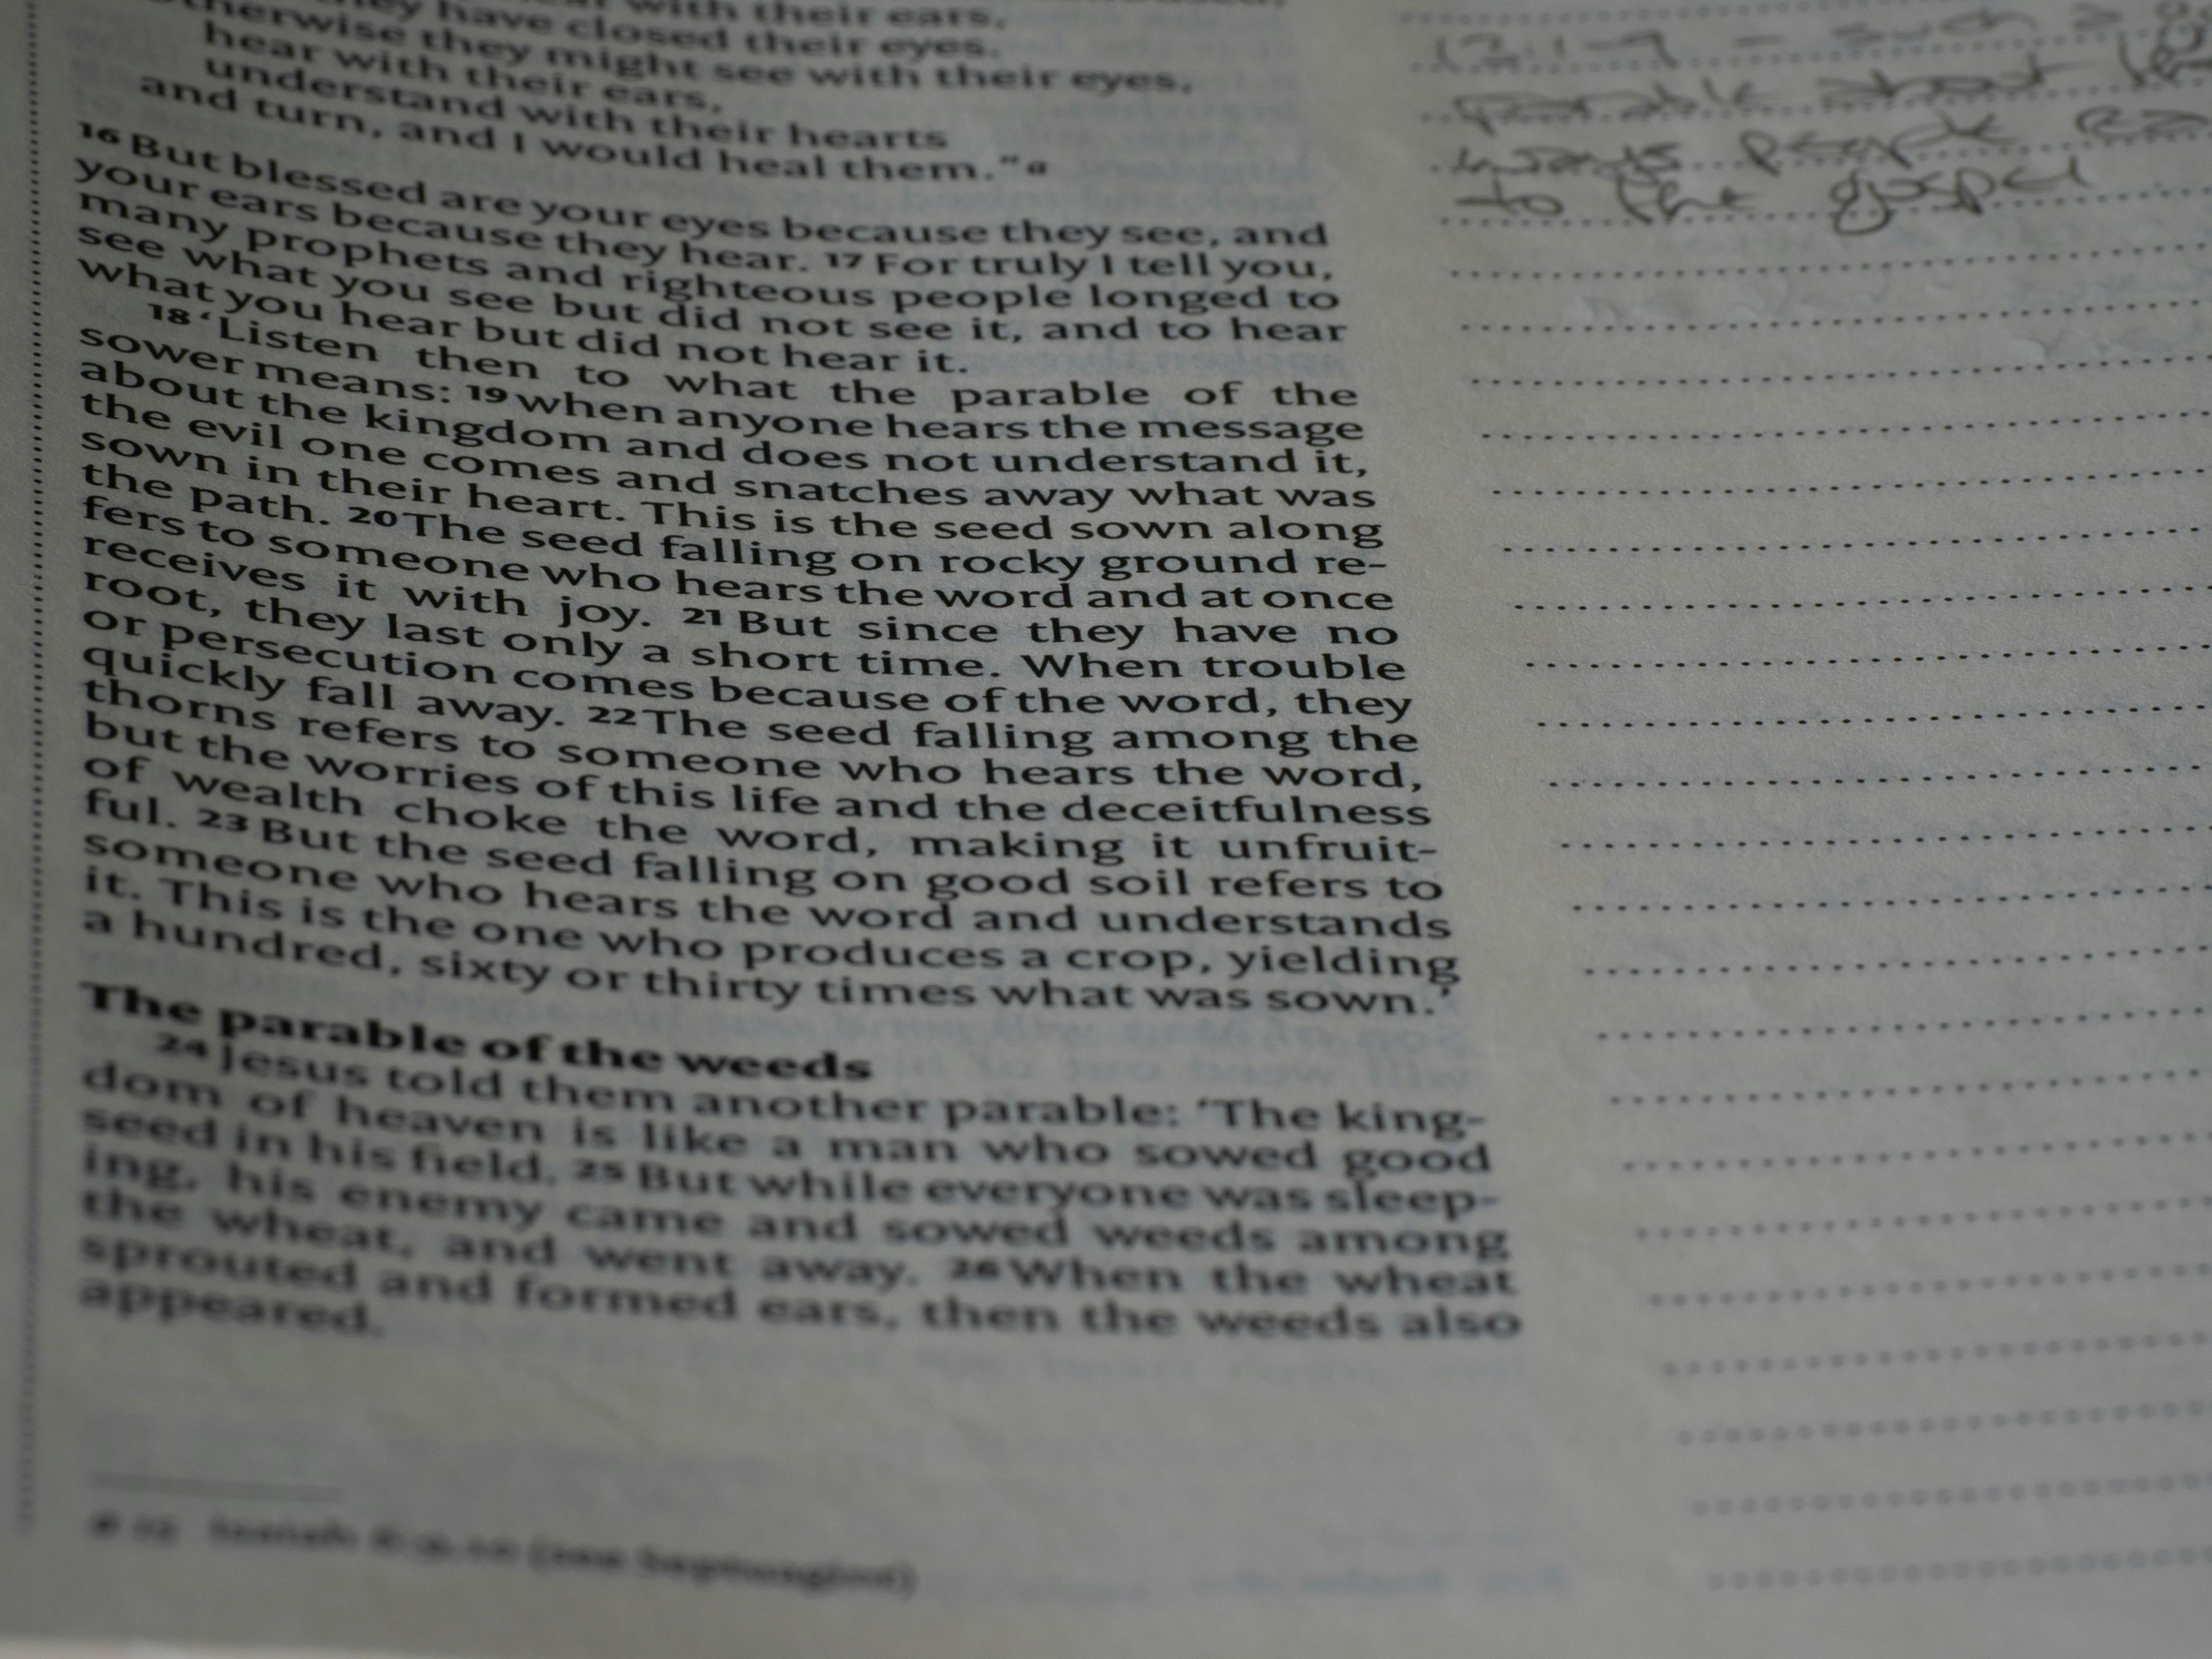 with their ears,
have closed their eyes.
they might see with their eyes,
hear with their ears,
understand with their hearts
and turn, and I would heal them."a
16 But blessed are your eyes because they see, and
your ears because they hear. 17 For truly I tell you,
many prophets and righteous people longed to
see what you see but did not see it, and to hear
what you hear but did not hear it.
18 ‘Listen then to what the parable of the
sower means: 19 when anyone hears the message
about the kingdom and does not understand it,
the evil one comes and snatches away what was
sown in their heart. This is the seed sown along
the path. 20 The seed falling on rocky ground re-
fers to someone who hears the word and at once
receives it with joy. 21 But since they have no
root, they last only a short time. When trouble
or persecution comes because of the word, they
quickly fall away. 22 The seed falling among the
thorns refers to someone who hears the word,
but the worries of this life and the deceitfulness
of wealth choke the word, making it unfruit-
ful. 23 But the seed falling on good soil refers to
someone who hears the word and understands
it. This is the one who produces a crop, yielding
a hundred, sixty or thirty times what was sown.’
The parable of the weeds
24 Jesus told them another parable: ‘The king-
dom of heaven is like a man who sowed good
seed in his field. 25 But while everyone was sleep-
ing, his enemy came and sowed weeds among
the wheat, and went away. 26 When the wheat
sprouted and formed ears, then the weeds also
appeared.
Isaiah 6:9,10 (see Septuagint)
parable about
ways people
to the gospel